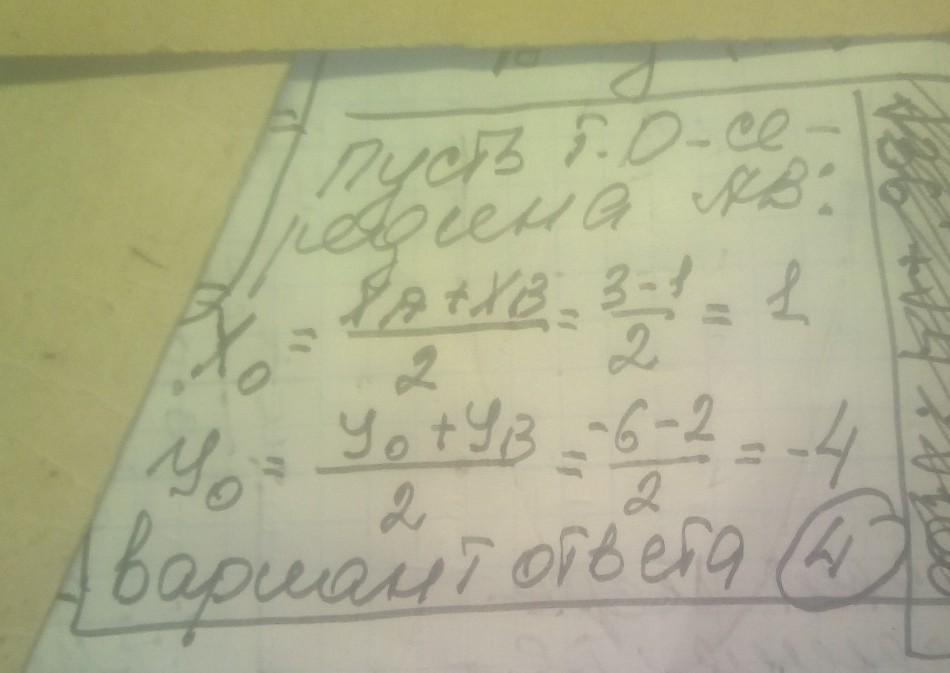 Пусть т. О - се-
редина АВ:
X₀ = (X_A + X_B)/2 = (3 - 1)/2 = 1
y₀ = (y₀ + y_B)/2 = (-6 - 2)/2 = -4
вариант ответа 4